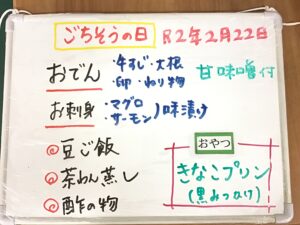 ごちそうの日 R2年2月22日
おでん ・牛すじ・大根
・卵・ねり物 甘味噌付
お刺身 ・マグロ
・サーモン 味漬け
◎豆ご飯
◎茶わん蒸し
◎酢の物
おやつ
きなこプリン
(黒みつかけ)